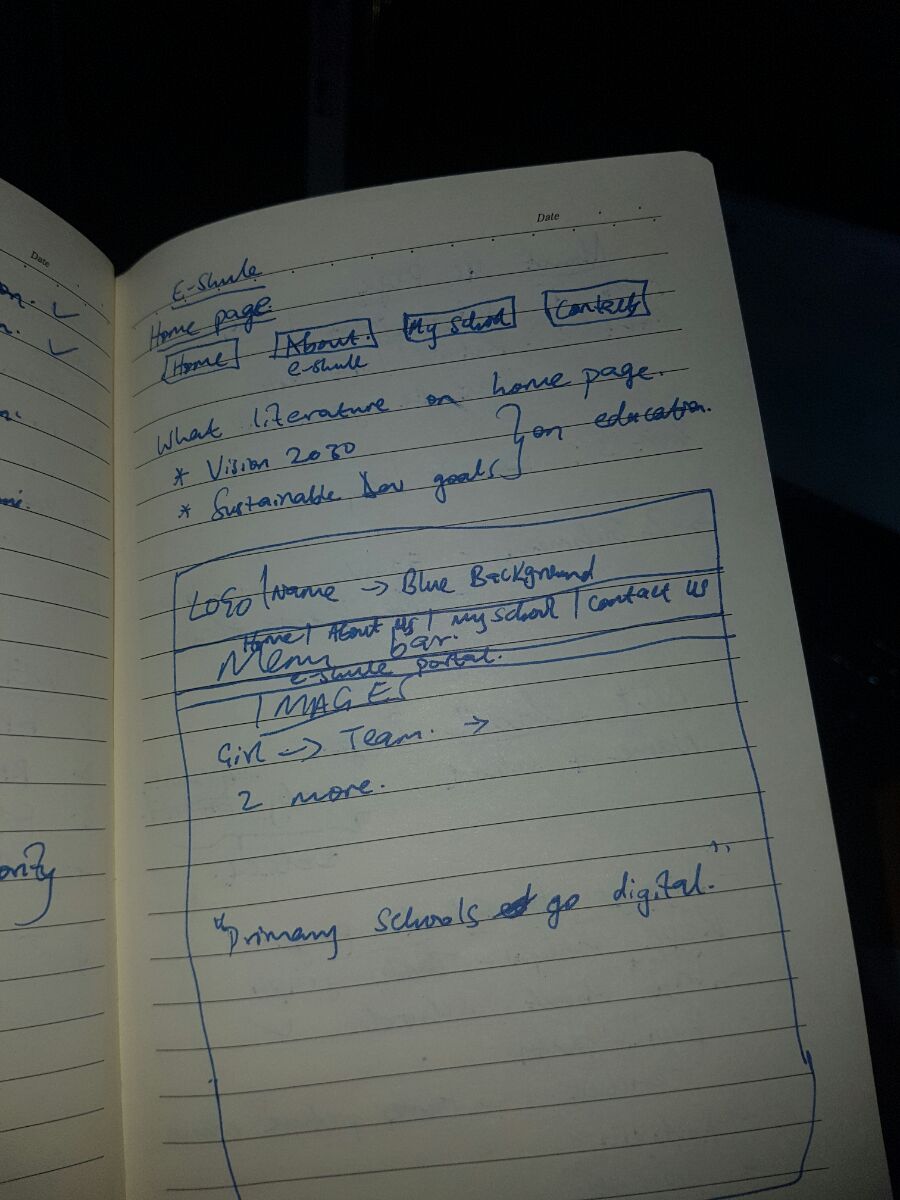 Date
Date
E-Shule
Home page.
Home About. My School Contacts
e-shule
What literature on home page.
* Vision 2030
* Sustainable Dev goals } on education.
LOGO | Name → Blue Background
Home | About Us | My School | Contact us
Menu bar.
e-shule portal.
IMAGES
Girl → Team. →
2 more.
"Primary schools go digital."